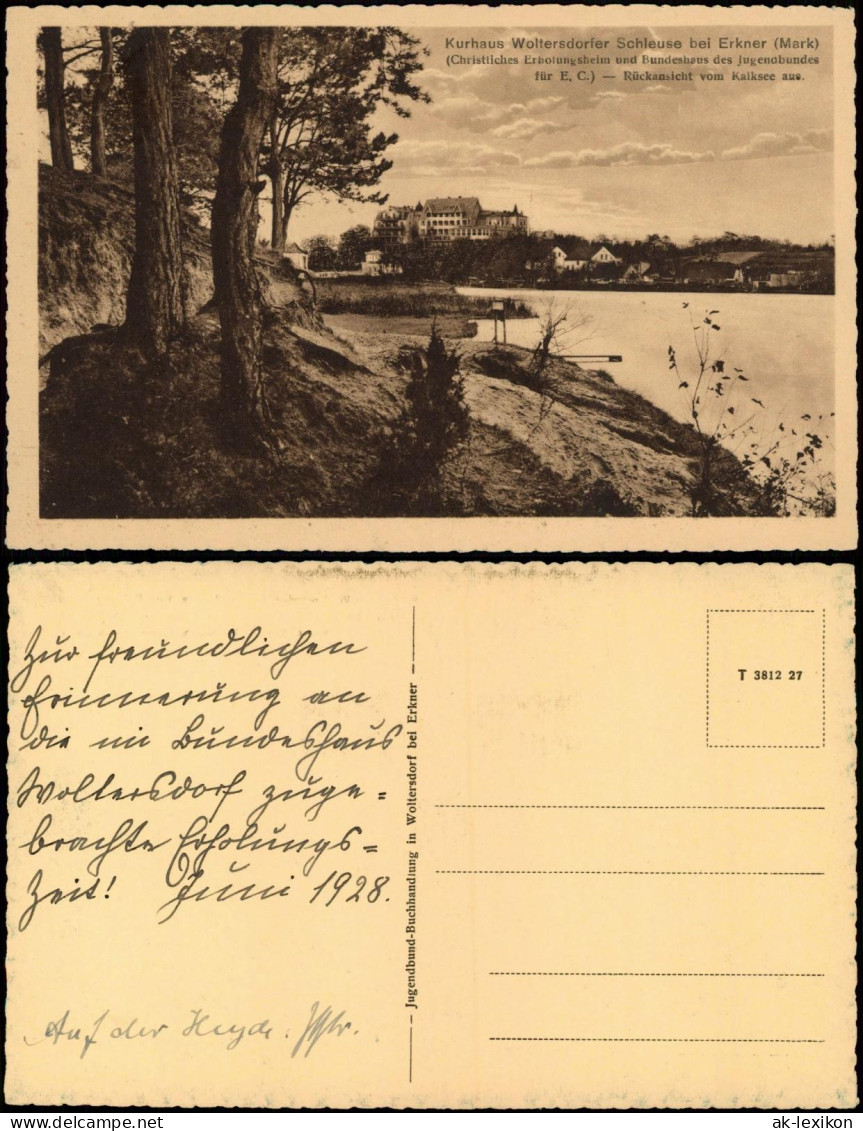 Kurhaus Woltersdorfer Schleuse bei Erkner (Mark)
(Christliches Erholungsheim und Bundeshaus des Jugendbundes
für E. C.) — Rückansicht vom Kalksee aus.
Zur freundlichen
Erinnerung an
die im Bundeshaus
Woltersdorf zuge=
brachte Erholungs=
Zeit! Juni 1928.
Auf der Heyde.
— Jugendbund-Buchhandlung in Woltersdorf bei Erkner —
T 3812 27
www.oldthing.de
ak-lexikon